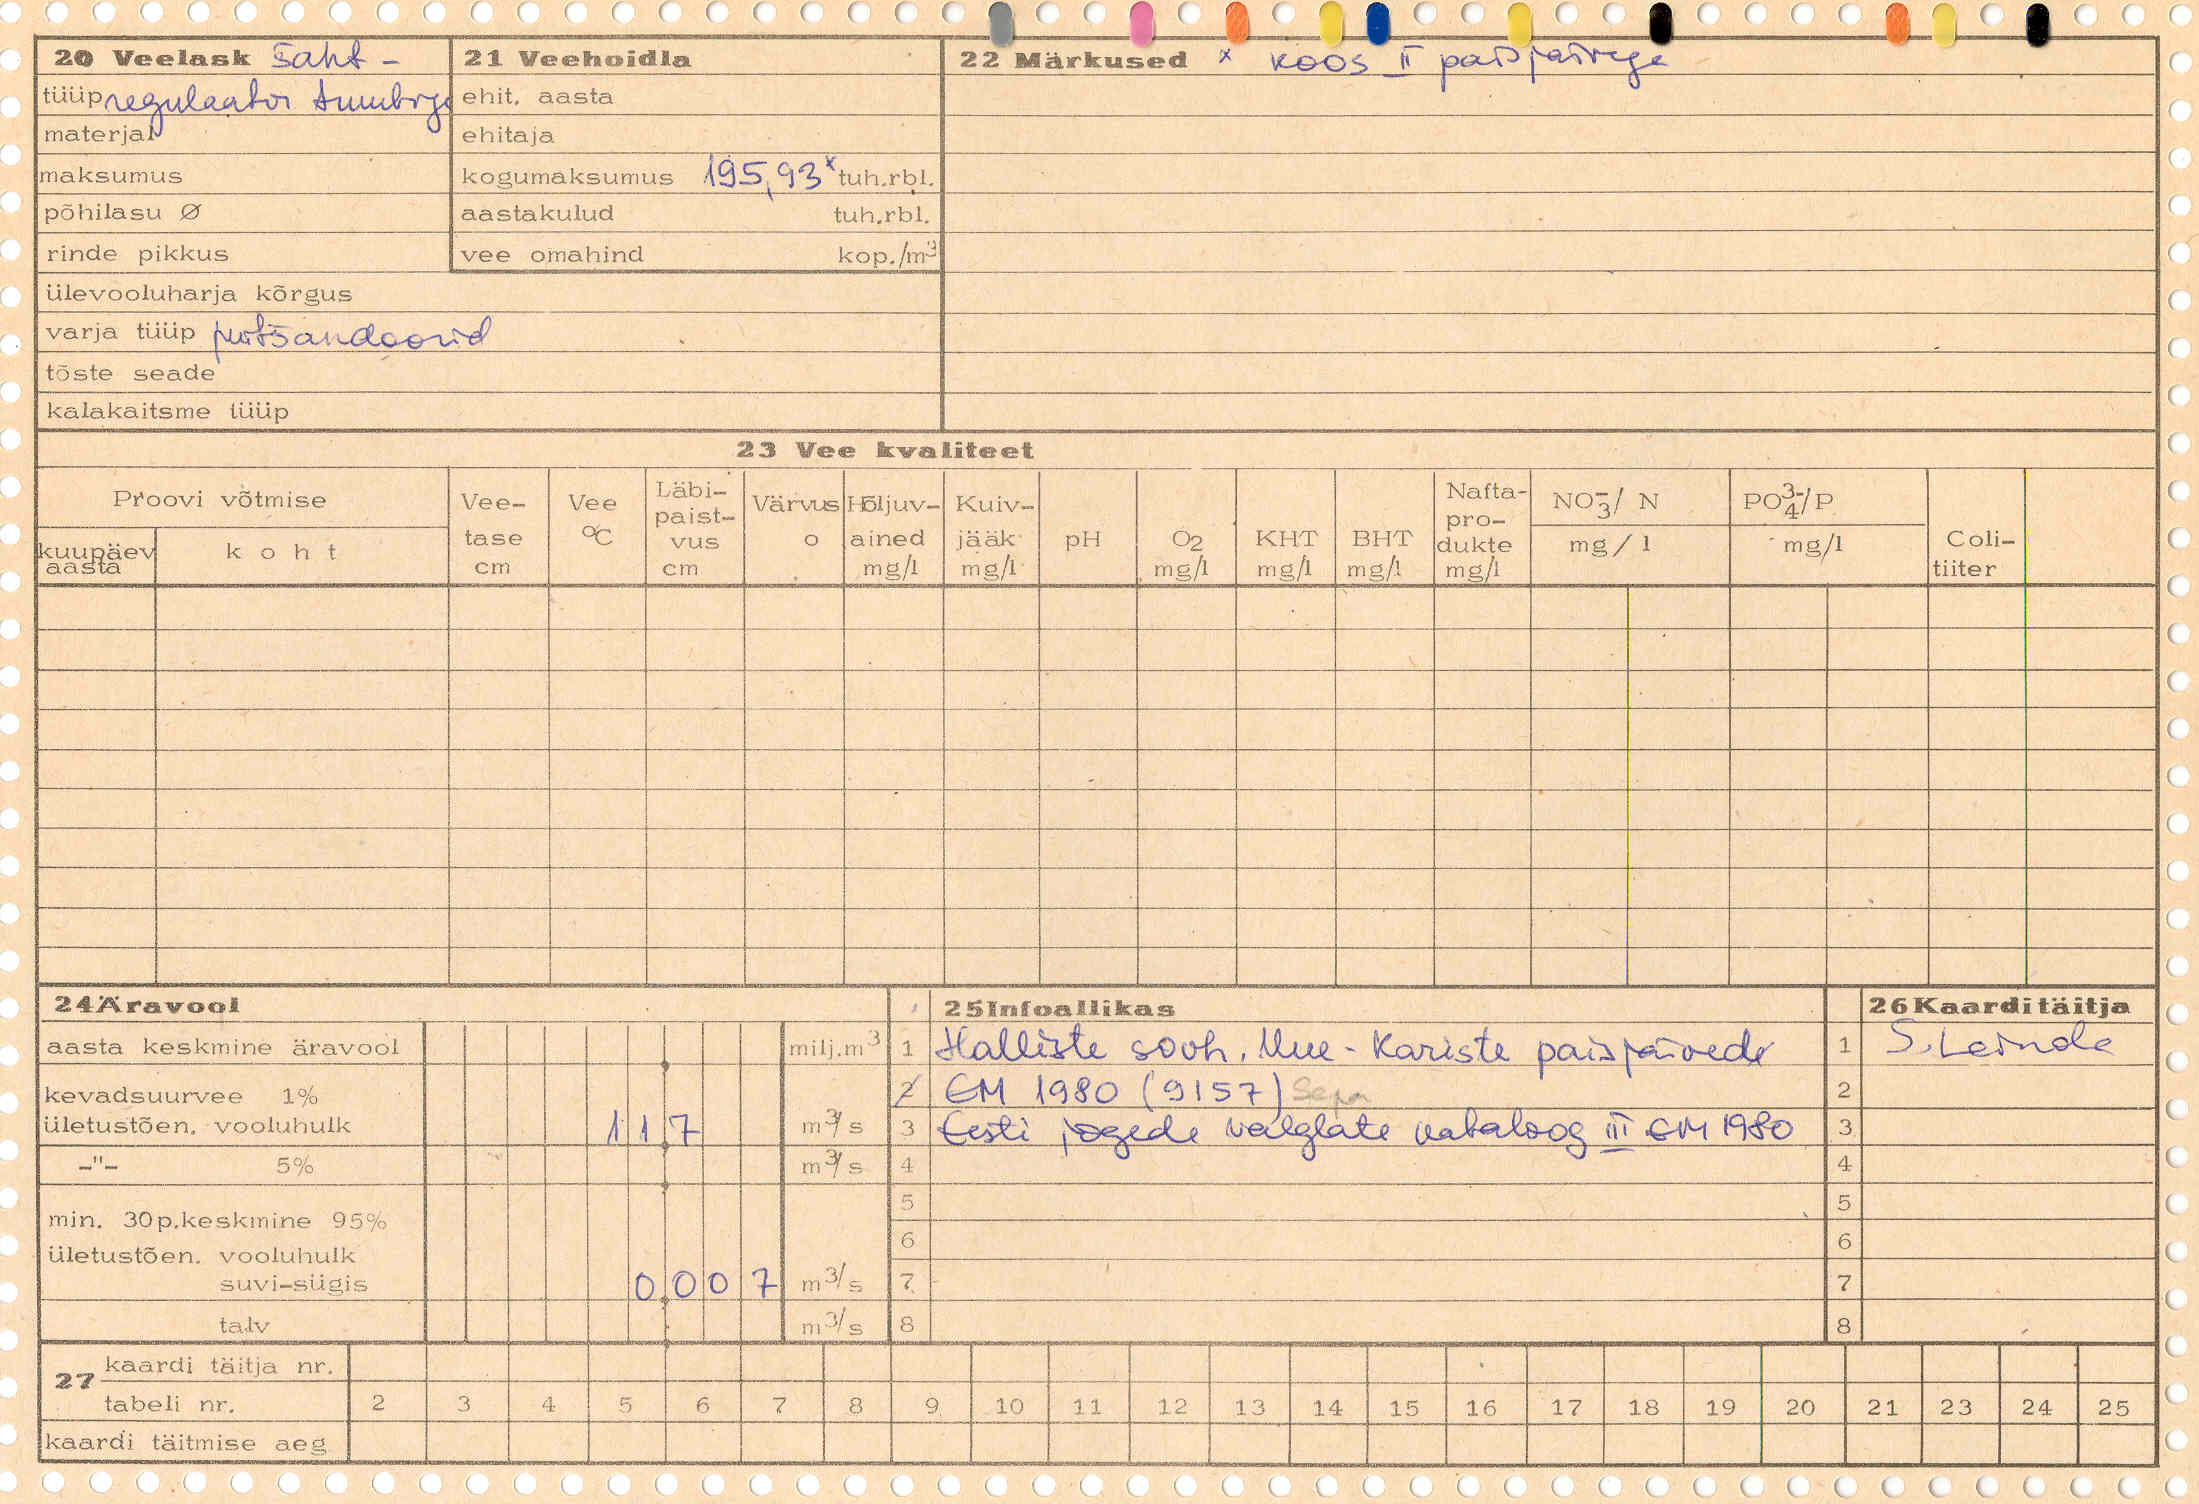 20 Veelask šaht-
tüüp regulaator truubiga
materjal
maksumus
põhilasu Ø
rinde pikkus
ülevooluharja kõrgus
varja tüüp puitšandoorid
tõste seade
kalakaitsme tüüp
21 Veehoidla
ehit. aasta
ehitaja
kogumaksumus 195,93x tuh.rbl.
aastakulud tuh.rbl.
vee omahind kop./m3
22 Märkused x koos II paisjärvega
23 Vee kvaliteet
Proovi võtmise
kuupäev aasta
koht
Vee-tase cm
Vee °C
Läbi-paist-vus cm
Värvus o
Hõljuv-ained mg/l
Kuiv-jääk mg/l
pH
O2 mg/l
KHT mg/l
BHT mg/l
Nafta-pro-dukte mg/l
NO3-/ N mg/l
PO4 3-/P mg/l
Coli-tiiter
24 Äravool
aasta keskmine äravool milj.m3
kevadsuurvee 1%
ületustõen. vooluhulk 11 7 m3/s
-"- 5% m3/s
min. 30p.keskmine 95%
ületustõen. vooluhulk
suvi-sügis 0 0 0 7 m3/s
talv m3/s
25 Infoallikas
1 Halliste sovh. Uue-Kariste paisjärvede
2 EM 1980 (9157) Sepa
3 Eesti jõgede valglate kataloog III EM 1980
4
5
6
7
8
26 Kaardi täitja
1 S. Leinola
2
3
4
5
6
7
8
27 kaardi täitja nr.
tabeli nr. 2 3 4 5 6 7 8 9 10 11 12 13 14 15 16 17 18 19 20 21 23 24 25
kaardi täitmise aeg